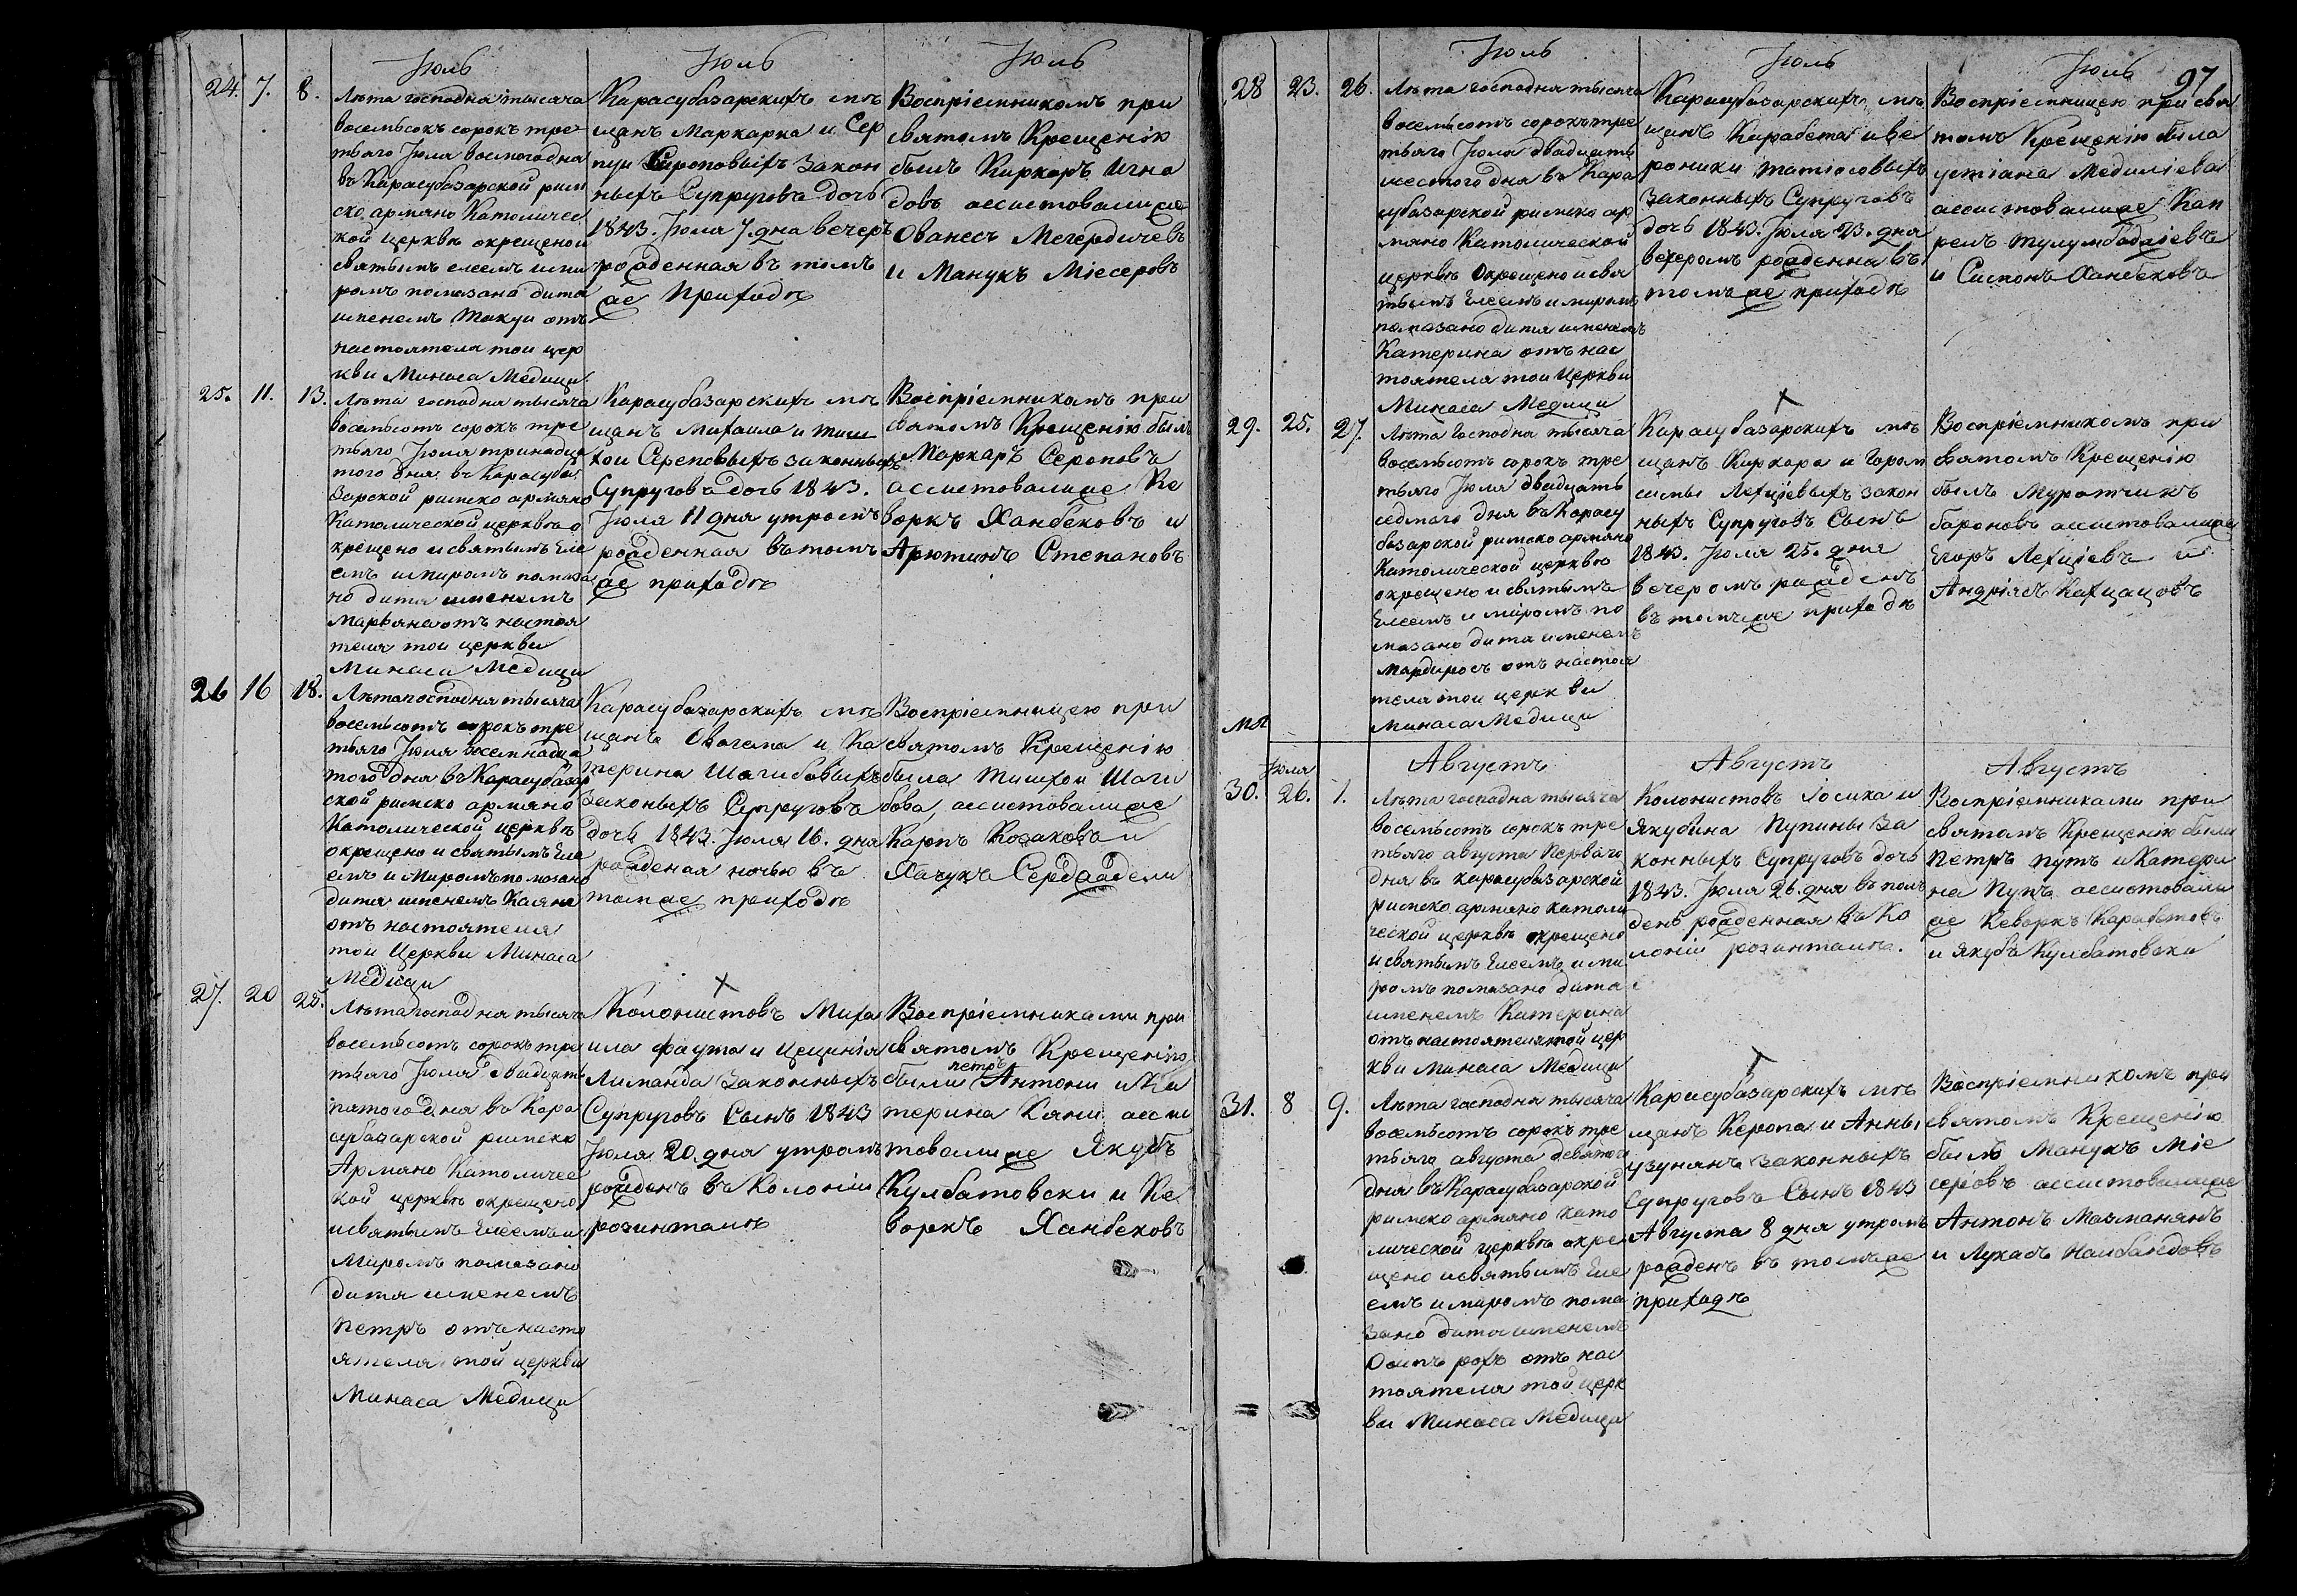 Іюль
24. 7. 8.
Лѣта господня тысяча
восемьсокъ сорокъ тре
тьяго Іюля восмого дня
въ Карасубазарской рим
ско армяно Католичес
кой церквѣ окрещеной
святымъ елеемъ и ми
ромъ помазано дитя
именемъ Такуи отъ
настоятеля тои цер
кви Минаса Медици
Іюль
Карасубазарскихъ мѣ
щанъ Маркарка и Сер
пуи Сироповыхъ закон
ныхъ Супруговъ дочь
1843. Іюля 7. дня вечеръ
рожденная въ томъ
же Приходѣ
Іюль
Воспріемникомъ при
святомъ Крещенію
былъ Киркоръ Игна
довъ ассистовалисе
Ованесъ Мегердичевъ
и Манукъ Міесеровъ
25. 11. 13.
Лѣта господня тысяча
восемьсотъ сорокъ тре
тьяго Іюля тринадца
того дня въ Карасуба
зарской римско армяно
Католической церквѣ о
крещено и святымъ Еле
емъ и миромъ помаза
но дитя именемъ
Марьяна отъ настоя
теля тои церкви
Минаса Медици
Карасубазарскихъ мѣ
щанъ Михаила и Тиш
хои Сереповыхъ законныхъ
Супруговъ дочь 1843.
Іюля 11 дня утромъ
рожденная въ томъ
же приходѣ
Воспріемникомъ при
святомъ Крещенію былъ
Маркаръ Сероповъ
ассистовалисе Ке
воркъ Ханбековъ и
Арютинъ Степановъ
26 16 18.
Лѣта господня тысяча
восемьсотъ сорокъ тре
тьяго Іюля восемнадца
того дня въ Карасубазар
ской римско армяно
Католической церквѣ
окрещено и святымъ Еле
емъ и Миромъ помазано
дитя именемъ Каяне
отъ настоятеля
тои Церкви Минаса
Медици
Карасубазарскихъ мѣ
щанъ Овагема и Ка
терина Шагибовыхъ
законыхъ Супруговъ
дочь 1843. Іюля 16. дня
рожденая ночью въ
томже приходѣ
Воспріемницею при
святомъ Крещенію
была Тишхои Шаги
бова, ассистовалисе
Карпъ Козаковъ и
Хачукъ
27. 20 25.
Лѣта господня тысяча
восемьсотъ сорокъ тре
тьяго Іюля двадцать
пятого дня въ Кара
субазарской римско
Армяно Католичес
кой церквѣ окрещено
и святымъ Елеемъ и
Миромъ помазано
дитя именемъ
Петръ отъ насто
ятеля той церкви
Минаса Медици
Колонистовъ Миха
ила Фаута и Цецилія
Лиманда законныхъ
Супруговъ Сынъ 1843
Іюля 20. дня утромъ
рожденъ въ Колоніи
розинталѣ
Воспріемниками при
святомъ Крещенію
петръ
были Антони и Ка
терина Кяни асси
товалисе Якубъ
Кулбатовски и Ке
воркъ Ханбековъ
97
Іюль
28 23. 26.
Лѣта господня тысяча
восемьсотъ сорокъ тре
тьяго Іюля двадцать
шестого дня въ Кара
субазарской римско ар
мяно Католической
церквѣ окрещено и свя
тымъ Елеемъ и миромъ
помазано дитя именемъ
Катерина отъ нас
тоятеля тои Церкви
Минаса Медици
Іюль
Карасубазарскихъ мѣ
щанъ Карабета и Ве
роники Татіосовыхъ
Законныхъ Супруговъ
дочь 1843. Іюля 23. дня
вечеромъ рожденна въ
томъ же приходѣ
Іюль
Воспріемницею при свя
томъ Крещенію была
Устіана Медиліева
ассистовалисе Кап
релъ Тулумбаджіевъ
и Симонъ Ханбековъ
29. 25. 27.
Лѣта Господня тысяча
восемьсотъ сорокъ тре
тьяго Іюля двадцать
седмого дня въ Карасу
базарской римско армяно
Католической церквѣ
окрещено и святымъ
Елеемъ и миромъ по
мазано дитя именемъ
Мардиросъ отъ настоя
теля тои церкви
Минаса Медици
Карасубазарскихъ мѣ
щанъ Киркора и Горот
симы Лехціевыхъ закон
ныхъ Супруговъ Сынъ
1843. Іюля 25. дня
вечеромъ рожденъ
въ томъ же приходѣ
Воспріемникомъ при
святомъ Крещенію
былъ Муратчикъ
бароновъ ассистовалисе
Егоръ Лехціевъ и
Андріясъ Катцацовъ
Августъ
Іюля
30. 26. 1.
Лѣта господня тысяча
восемьсотъ сорокъ тре
тьяго августа перваго
дня въ карасубазарской
римско армяно католи
ческой церквѣ окрещено
и святымъ Елеемъ и ми
ромъ помазано дитя
именемъ Катерина
отъ настоятеля той цер
кви Минаса Медици
Августъ
Колонистовъ Іосика и
Якубина Пупины За
конныхъ Супруговъ дочь
1843. Іюля 26. дня въ пол
день рожденная въ Ко
лоніи розинталѣ.
Августъ
Воспріемниками при
святомъ Крещенію были
Петръ Пупъ и Катери
на Пупъ ассистовали
се Кеворкъ Карабетовъ
и Якубъ Кулбатовски
31. 8 9.
Лѣта господня тысяча
восемьсотъ сорокъ тре
тьяго августа девятого
дня въ Карасубазарской
римско армяно като
лической церквѣ окре
щено и святымъ Еле
емъ и миромъ пома
зано дитя именемъ
рохъ отъ нас
тоятеля той церк
ви Минаса Медици
Карасубазарскихъ мѣ
щанъ Керопа и Анны
Узунянъ законныхъ
Супруговъ Сынъ 1843
Августа 8 дня утромъ
рожденъ въ томъ же
приходѣ
Воспріемникомъ при
святомъ Крещенію
былъ Манукъ Міе
серовъ ассистовалисе
Антонъ Магманянъ
и Лукасъ Налбандовъ